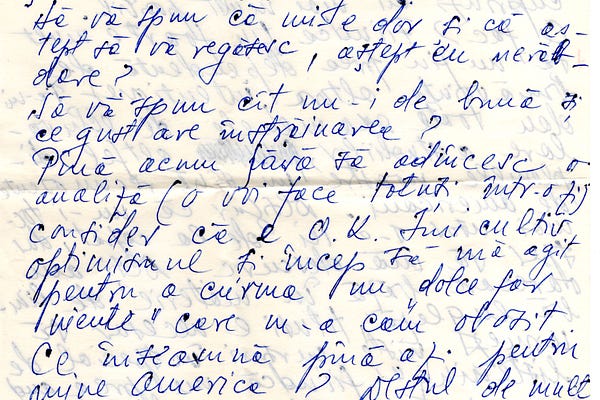 să vă spun că mi-e dor și că aș-
tept să vă regăsesc, aștept cu nerăb-
dare?
Să vă spun cît nu-i de bună și
ce gust are înstrăinarea?
Pînă acum fără să adîncesc o
analiză (o voi face totuși într-o zi)
consider că e O.K. Îmi cultiv
optimismul și încep să mă agit
pentru a curma un "dolce far
niente" care m-a cam obosit
Ce înseamnă pînă az. pentru
mine America? Destul de mult